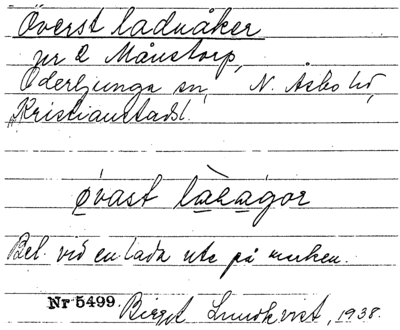 Överst laduåker
nr 2 Månstorp,
Oderljunga sn, N. Åsbo hd,
Kristianstads l.
øvast làravgor
Bel. vid en lada ute på marken.
Nr 5499. Birgit Lundkvist, 1938.